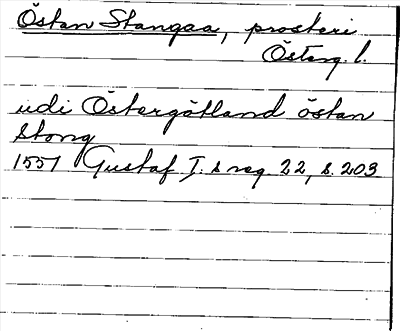 Östan Stangaa, prosteri
Österg. l.
udi Östergötland östan
Stong
1551 Gustaf I:s reg. 22, s. 203